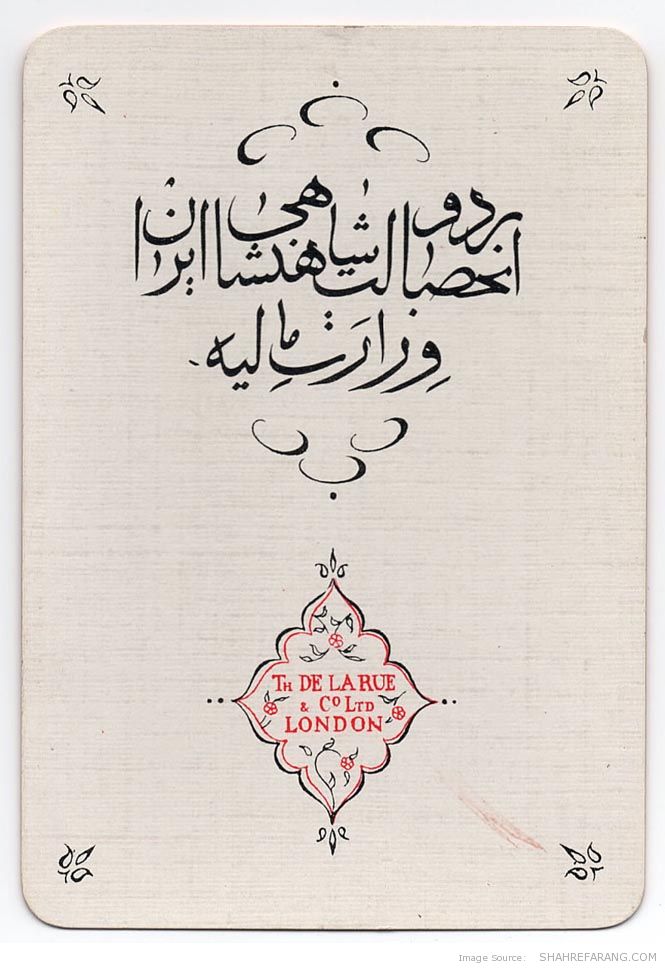 انحصار دولت شاهنشاهی ایران
وزارت مالیه
TH DE LA RUE
& CO LTD
LONDON
Image Source: SHAHREFARANG.COM